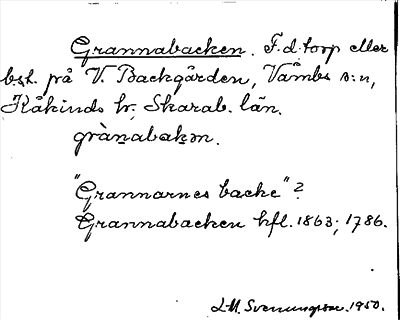 Grannabacken. F.d. torp eller
bst. på V. Backgården, Våmbs s:n,
Kåkinds hr, Skarab. län.
gràn̲abak̲ən.
"Grannarnes backe"?
Grannabacken hfl. 1863; 1786.
L-M. Svenungsson. 1950.